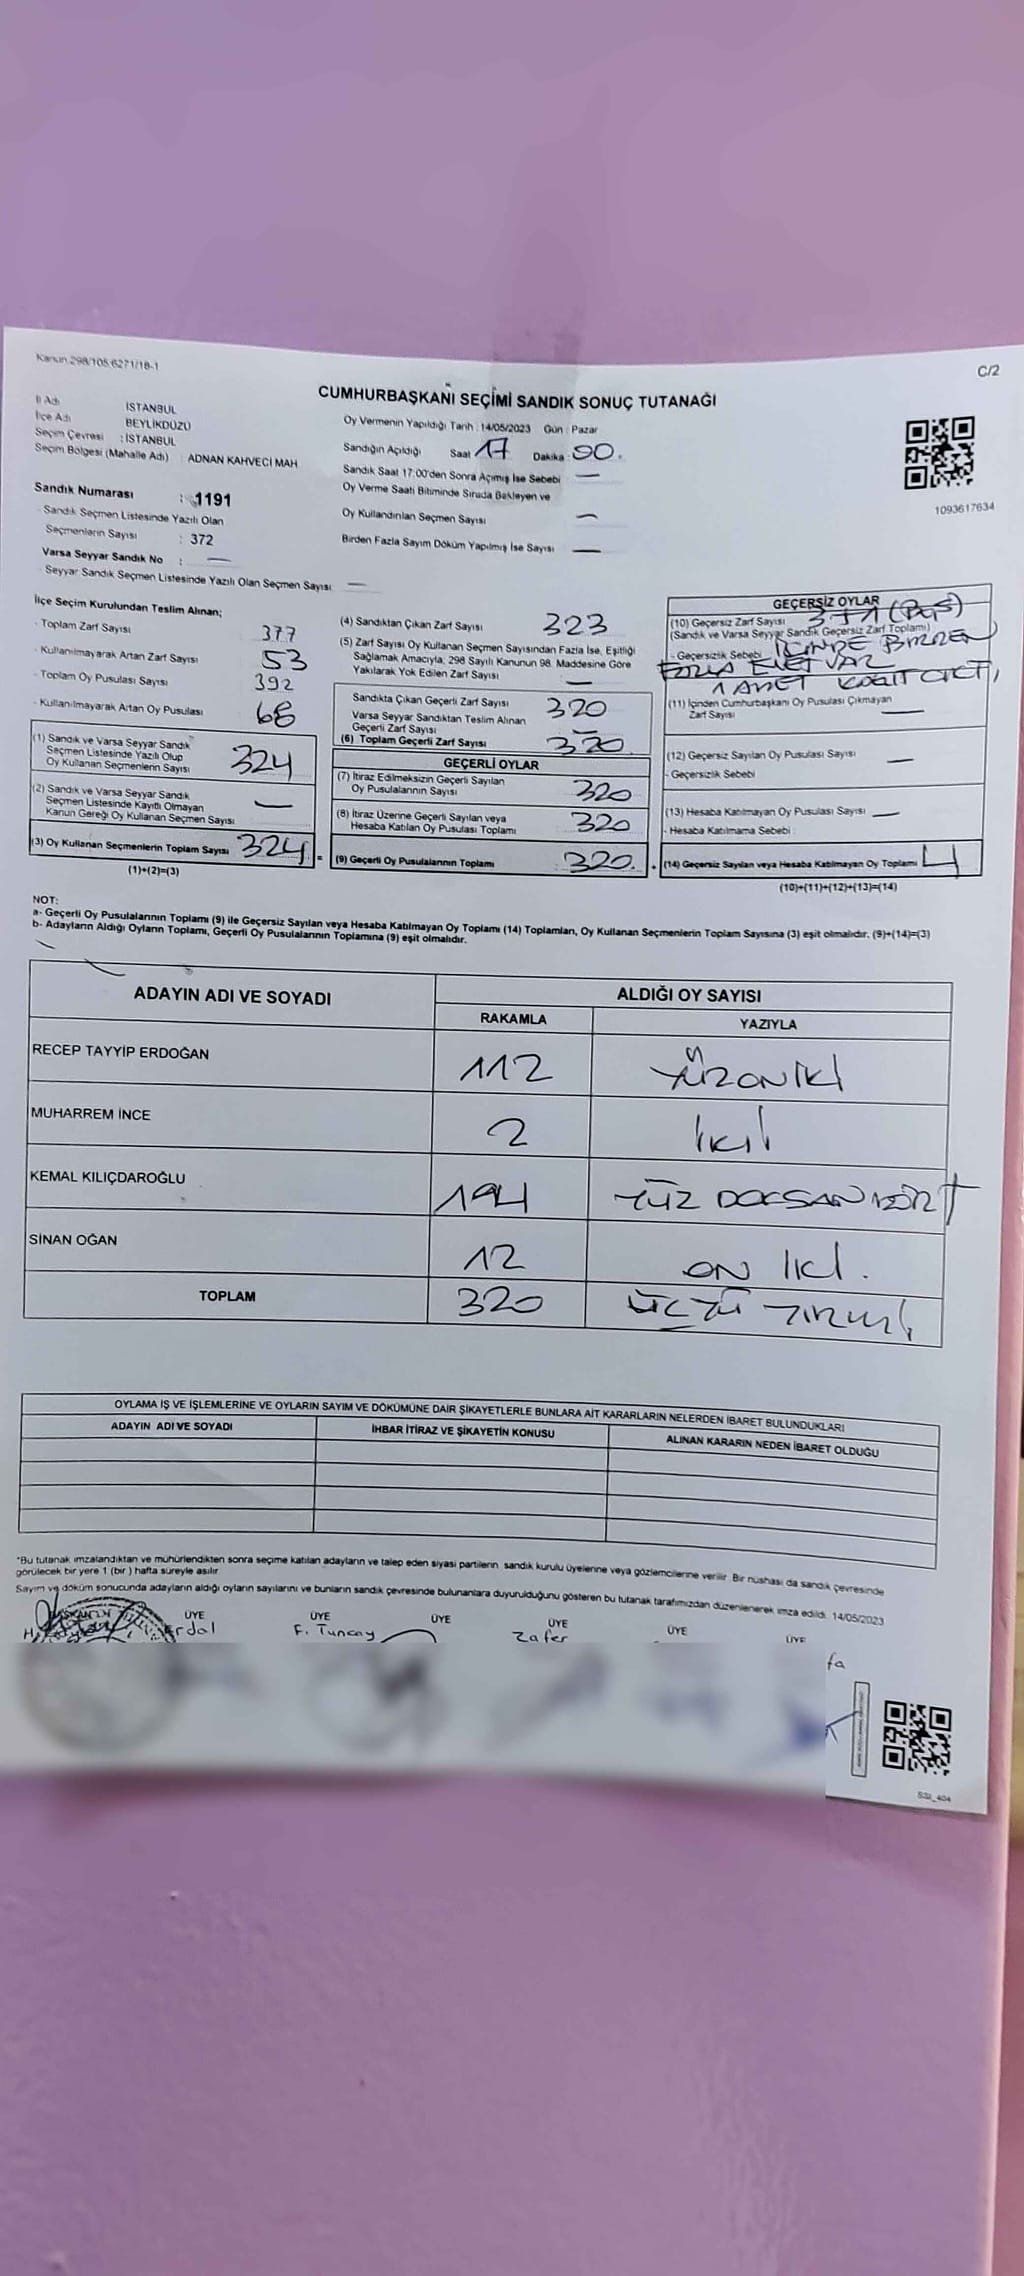 Kanun 298/105 6271/18-1
C/2
CUMHURBAŞKANI SEÇİMİ SANDIK SONUÇ TUTANAĞI
İl Adı İSTANBUL
İlçe Adı BEYLİKDÜZÜ
Seçim Çevresi : İSTANBUL
Seçim Bölgesi (Mahalle Adı) : ADNAN KAHVECİ MAH
Sandık Numarası : 1191
- Sandık Seçmen Listesinde Yazılı Olan
Seçmenlerin Sayısı : 372
Varsa Seyyar Sandık No : —
- Seyyar Sandık Seçmen Listesinde Yazılı Olan Seçmen Sayısı —
Oy Vermenin Yapıldığı Tarih : 14/05/2023 Gün : Pazar
Sandığın Açıldığı Saat 17 Dakika : 00.
Sandık Saat 17:00'den Sonra Açımış İse Sebebi —
Oy Verme Saati Bitiminde Sırada Bekleyen ve
Oy Kullandırılan Seçmen Sayısı —
Birden Fazla Sayım Döküm Yapılmış İse Sayısı —
1093617634
İlçe Seçim Kurulundan Teslim Alınan;
- Toplam Zarf Sayısı 377
- Kullanılmayarak Artan Zarf Sayısı 53
- Toplam Oy Pusulası Sayısı 392
- Kullanılmayarak Artan Oy Pusulası 68
(1) Sandık ve Varsa Seyyar Sandık
Seçmen Listesinde Yazılı Olup
Oy Kullanan Seçmenlerin Sayısı 324
(2) Sandık ve Varsa Seyyar Sandık
Seçmen Listesinde Kayıtlı Olmayan
Kanun Gereği Oy Kullanan Seçmen Sayısı —
(3) Oy Kullanan Seçmenlerin Toplam Sayısı 324 =
(1)+(2)=(3)
(4) Sandıktan Çıkan Zarf Sayısı 323
(5) Zarf Sayısı Oy Kullanan Seçmen Sayısından Fazla İse, Eşitliği
Sağlamak Amacıyla, 298 Sayılı Kanunun 98. Maddesine Göre
Yakılarak Yok Edilen Zarf Sayısı —
Sandıkta Çıkan Geçerli Zarf Sayısı 320
Varsa Seyyar Sandıktan Teslim Alınan
Geçerli Zarf Sayısı —
(6) Toplam Geçerli Zarf Sayısı 320
GEÇERLİ OYLAR
(7) İtiraz Edilmeksizin Geçerli Sayılan
Oy Pusulalarının Sayısı 320
(8) İtiraz Üzerine Geçerli Sayılan veya
Hesaba Katılan Oy Pusulası Toplamı 320
(9) Geçerli Oy Pusulalarının Toplamı : 320 +
GEÇERSİZ OYLAR
(10) Geçersiz Zarf Sayısı : 3+1 (BOŞ)
(Sandık ve Varsa Seyyar Sandık Geçersiz Zarf Toplamı)
- Geçersizlik Sebebi İÇİNDE BİRDEN
FAZLA EVET VAR
1 ADET KAĞIT ÇIKTI,
(11) İçinden Cumhurbaşkanı Oy Pusulası Çıkmayan
Zarf Sayısı —
(12) Geçersiz Sayılan Oy Pusulası Sayısı —
- Geçersizlik Sebebi
(13) Hesaba Katılmayan Oy Pusulası Sayısı —
- Hesaba Katılmama Sebebi :
(14) Geçersiz Sayılan veya Hesaba Katılmayan Oy Toplamı 4
(10)+(11)+(12)+(13)=(14)
NOT:
a- Geçerli Oy Pusulalarının Toplamı (9) ile Geçersiz Sayılan veya Hesaba Katılmayan Oy Toplamı (14) Toplamları, Oy Kullanan Seçmenlerin Toplam Sayısına (3) eşit olmalıdır. (9)+(14)=(3)
b- Adayların Aldığı Oyların Toplamı, Geçerli Oy Pusulalarının Toplamına (9) eşit olmalıdır.
ADAYIN ADI VE SOYADI ALDIĞI OY SAYISI
RAKAMLA YAZIYLA
RECEP TAYYİP ERDOĞAN 112 YÜZONİKİ
MUHARREM İNCE 2 İKİ
KEMAL KILIÇDAROĞLU 194 YÜZ DOKSAN DÖRT
SİNAN OĞAN 12 ON İKİ.
TOPLAM 320 ÜÇYÜ YİRMİ
OYLAMA İŞ VE İŞLEMLERİNE VE OYLARIN SAYIM VE DÖKÜMÜNE DAİR ŞİKAYETLERLE BUNLARA AİT KARARLARIN NELERDEN İBARET BULUNDUKLARI
ADAYIN ADI VE SOYADI İHBAR İTİRAZ VE ŞİKAYETİN KONUSU ALINAN KARARIN NEDEN İBARET OLDUĞU
*Bu tutanak imzalandıktan ve mühürlendikten sonra seçime katılan adayların ve talep eden siyasi partilerin sandık kurulu üyelerine veya gözlemcilerine verilir. Bir nüshası da sandık çevresinde
görülecek bir yere 1 (bir) hafta süreyle asılır.
Sayım ve döküm sonucunda adayların aldığı oyların sayılarını ve bunların sandık çevresinde bulunanlara duyurulduğunu gösteren bu tutanak tarafımızdan düzenlenerek imza edildi. 14/05/2023
ÜYE ÜYE ÜYE ÜYE ÜYE ÜYE
Erdal F. Tuncay Zafer
fa
SSI_404